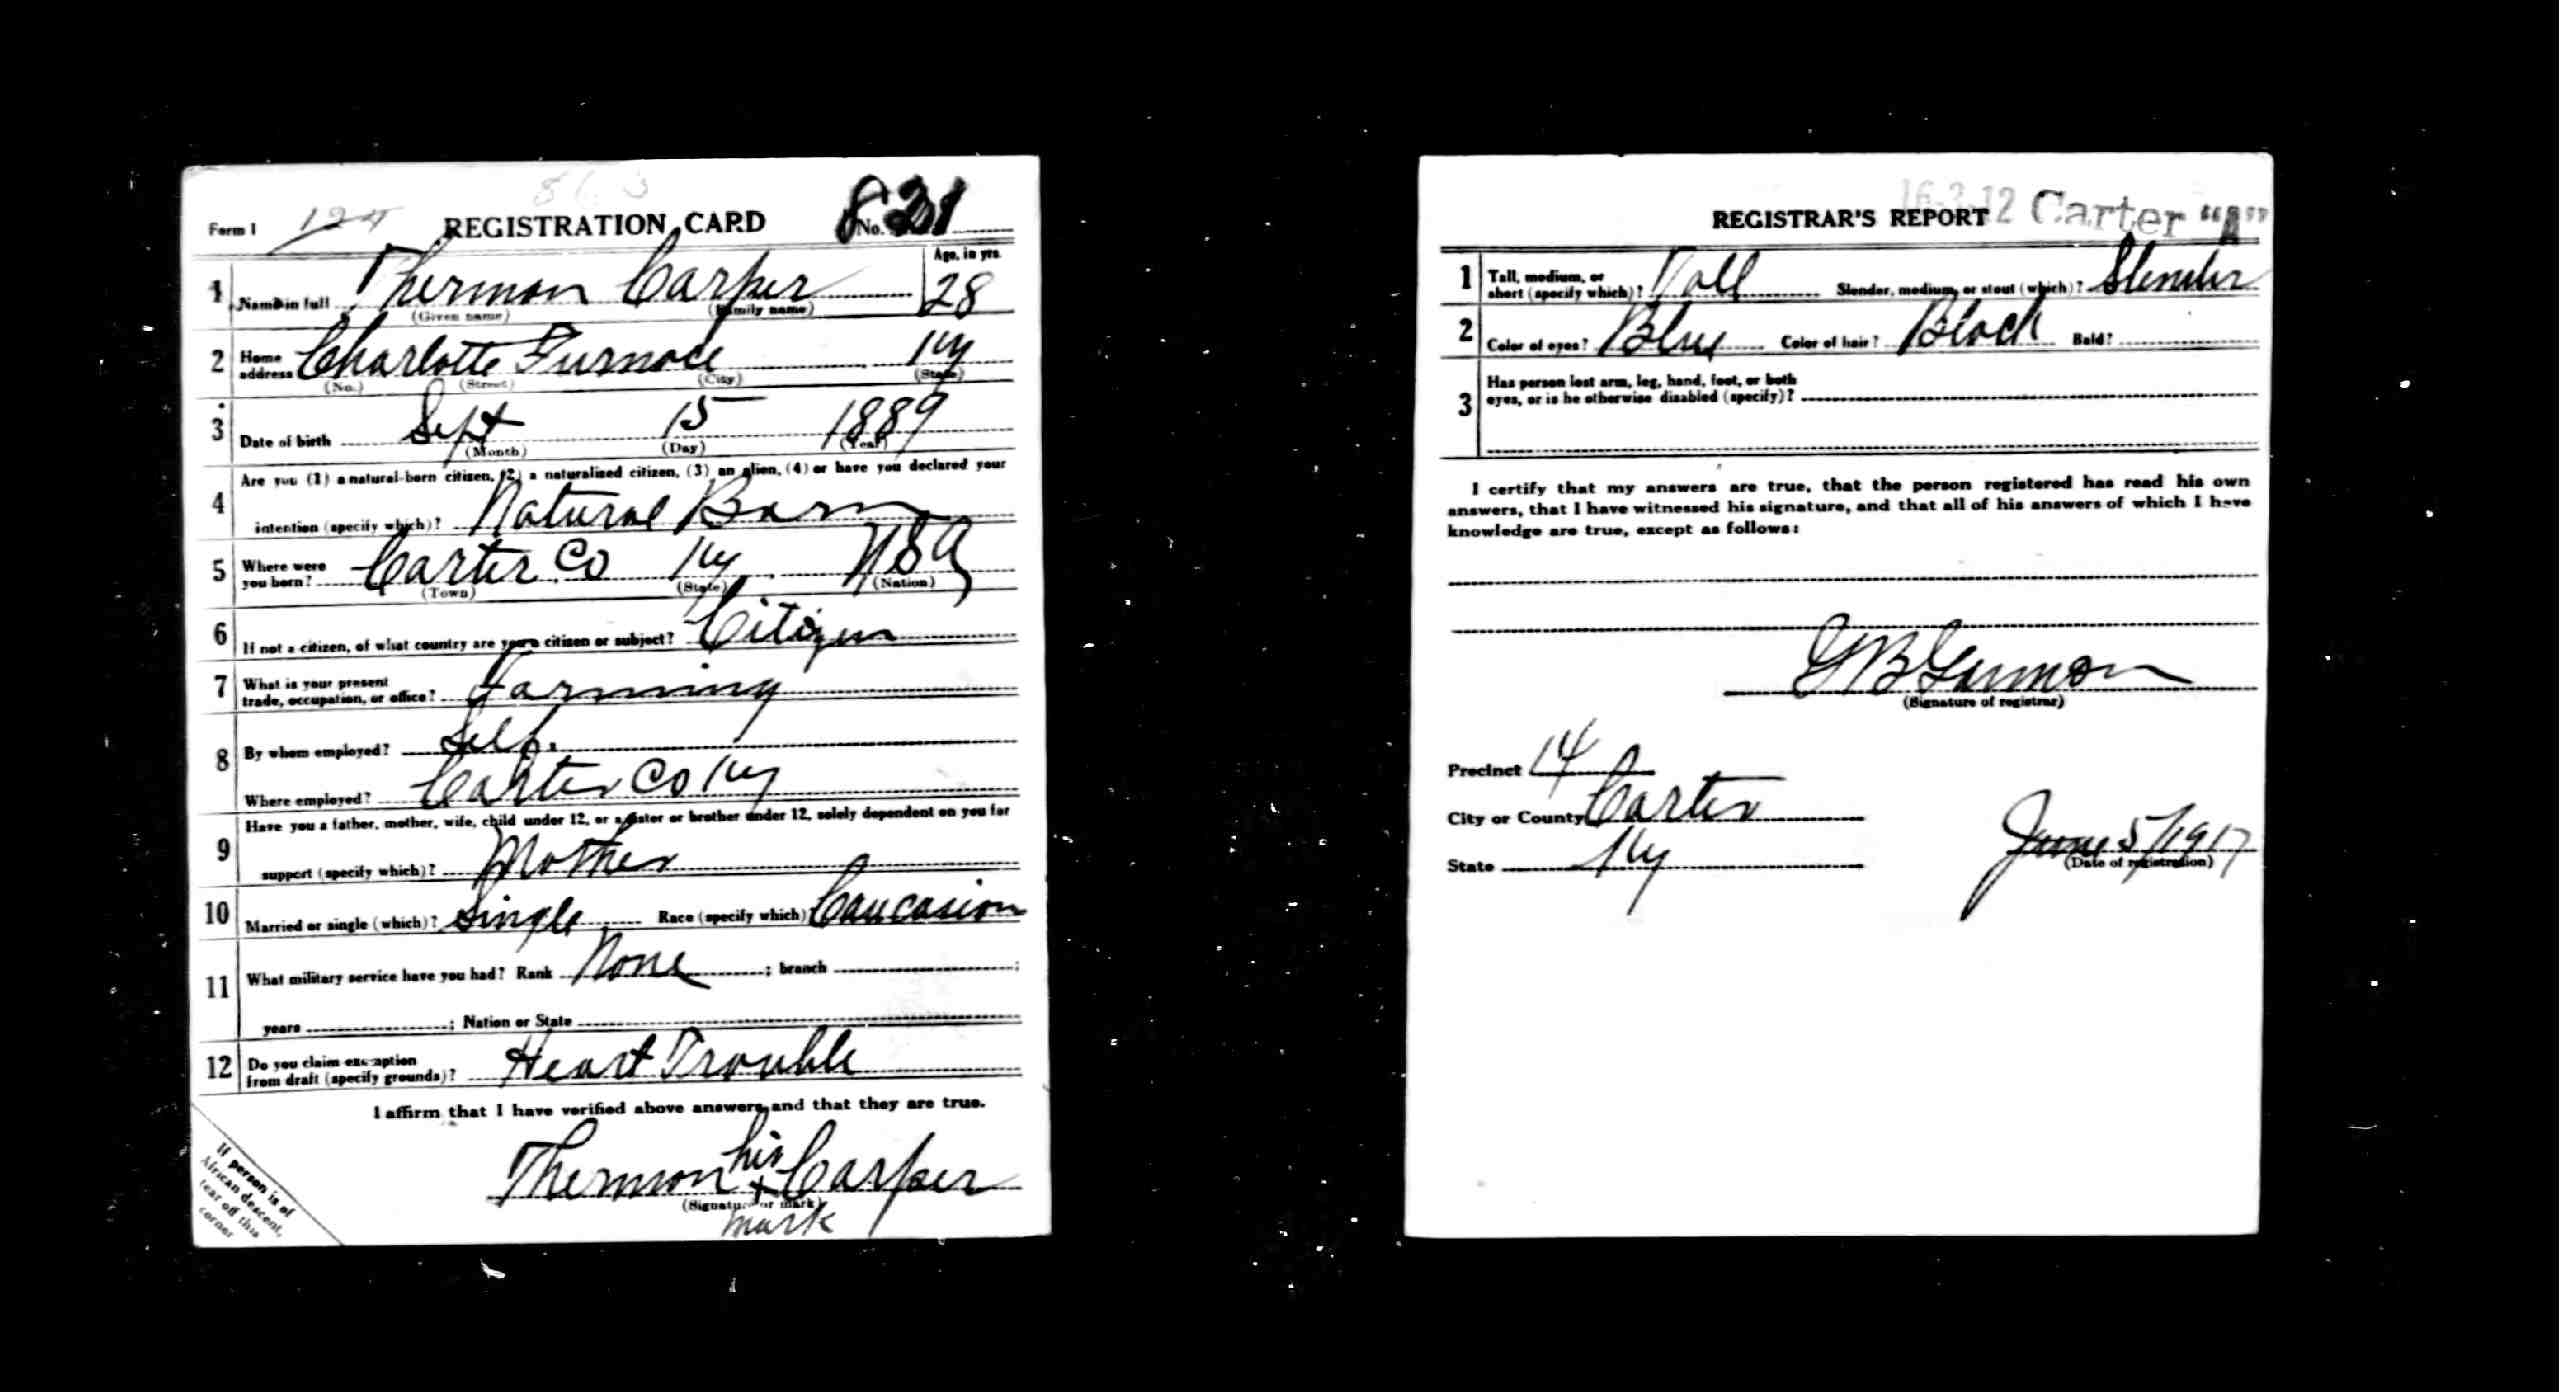 Form 1 124 REGISTRATION CARD No. 831
1 Name in full Thermon Carper Age, in yrs. 28
(Given name) (Family name)
2 Home address Charlotte Furnace Ky
(No.) (Street) (City) (State)
3 Date of birth Sept 15 1889
(Month) (Day) (Year)
4 Are you (1) a natural-born citizen, (2) a naturalized citizen, (3) an alien, (4) or have you declared your
intention (specify which)? Natural Born
5 Where were you born? Carter Co Ky USA
(Town) (State) (Nation)
6 If not a citizen, of what country are you a citizen or subject? Citizen
7 What is your present
trade, occupation, or office? Farming
8 By whom employed? Self.
Where employed? Carter Co Ky
9 Have you a father, mother, wife, child under 12, or a sister or brother under 12, solely dependent on you for
support (specify which)? Mother
10 Married or single (which)? Single Race (specify which) Caucasion
11 What military service have you had? Rank None ; branch ;
years ; Nation or State
12 Do you claim exemption
from draft (specify grounds)? Heart Trouble
I affirm that I have verified above answers and that they are true.
Thermon his + Carper
(Signature or mark)
mark
If person is of
African descent,
tear off this
corner
16-3-12 Carter "A"
REGISTRAR'S REPORT
1 Tall, medium, or
short (specify which)? Tall Slender, medium, or stout (which)? Slender
2 Color of eyes? Blue Color of hair? Black Bald?
3 Has person lost arm, leg, hand, foot, or both
eyes, or is he otherwise disabled (specify)?
I certify that my answers are true, that the person registered has read his own
answers, that I have witnessed his signature, and that all of his answers of which I have
knowledge are true, except as follows:
G B Gammon
(Signature of registrar)
Precinct 14
City or County Carter
State Ky
June 5/1917
(Date of registration)